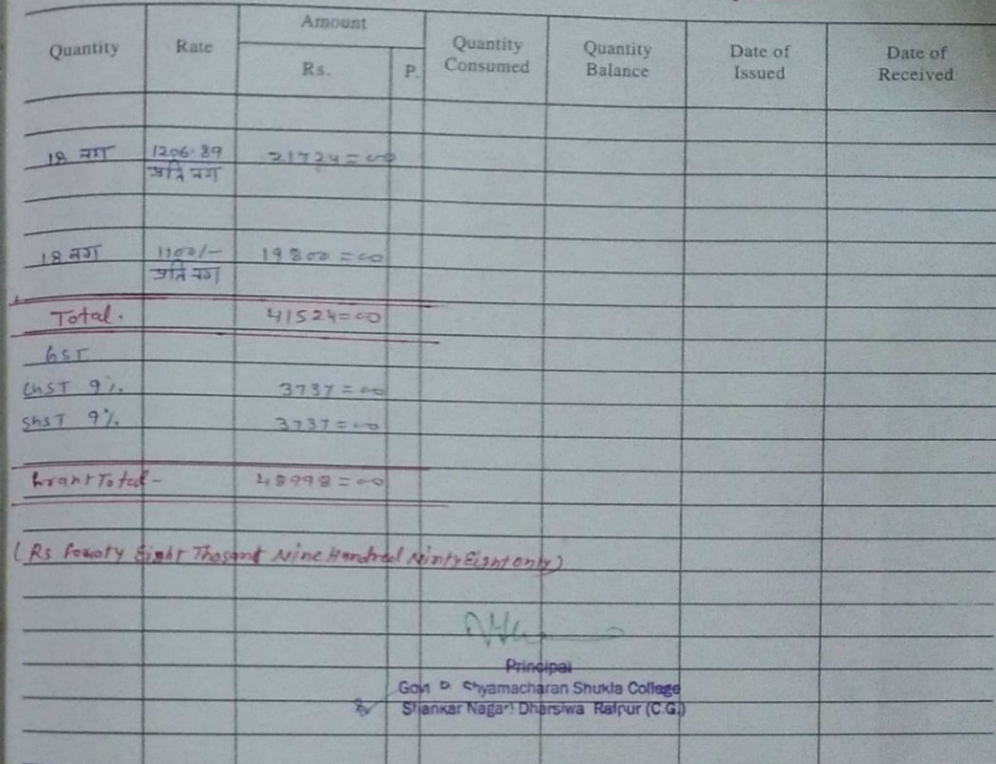 Quantity Rate Amount Quantity Consumed Quantity Balance Date of Issued Date of Received
Rs. P.
18 नग 1206.89 21724=00
प्रति नग
18 नग 1100/- 19800=00
प्रति नग
Total. 41524=00
GST
CGST 9% 3737=00
SGST 9% 3737=00
Grant Total- 48998=00
(Rs Fowoty Eight Thosant Nine Handred Ninty Eight only)
Principal
Govt P. Shyamacharan Shukla College
Shankar Nagar Dharsiwa Raipur (C.G.)